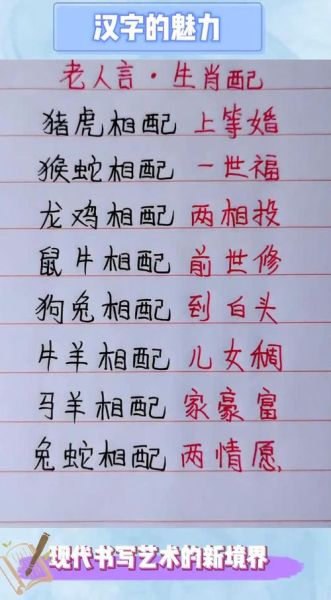 汉字的魅力
老人言·生肖配
猪虎相配 上等婚
猴蛇相配 一世福
龙鸡相配 两相投
鼠牛相配 前世修
狗兔相配 到白头
牛羊相配 儿女稠
马羊相配 家豪富
兔蛇相配 两情愿,
现代书写艺术的新境界